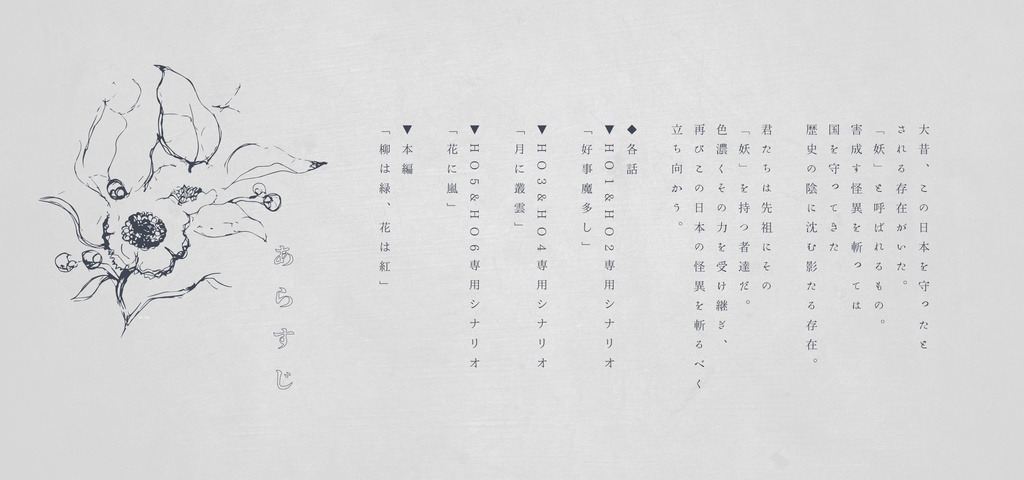 大昔、この日本を守ったと
される存在がいた。
「妖」と呼ばれるもの。
害成す怪異を斬っては
国を守ってきた
歴史の陰に沈む影たる存在。
君たちは先祖にその
「妖」を持つ者達だ。
色濃くその力を受け継ぎ、
再びこの日本の怪異を斬るべく
立ち向かう。
◆各話
▼HO1&HO2専用シナリオ
「好事魔多し」
▼HO3&HO4専用シナリオ
「月に叢雲」
▼HO5&HO6専用シナリオ
「花に嵐」
▼本編
「柳は緑、花は紅」
あらすじ